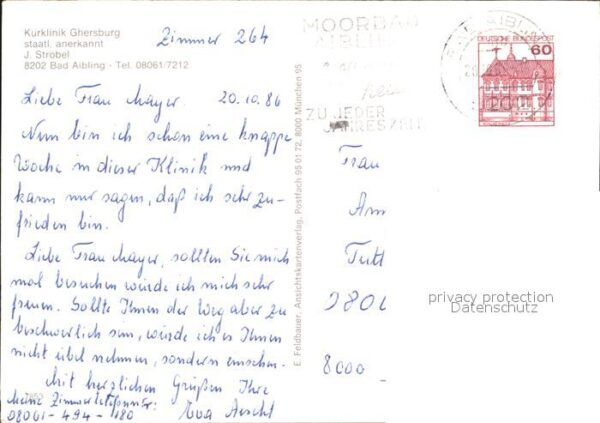 Kurklinik Ghersburg
staatl. anerkannt
J. Strobel
8202 Bad Aibling - Tel. 08061/7212
Zimmer 264
Liebe Frau Mayer. 20.10.86
Nun bin ich schon eine knappe
Woche in dieser Klinik und
kann nur sagen, daß ich sehr zu-
frieden bin.
Liebe Frau Mayer, sollten Sie mich
mal besuchen würde ich mich sehr
freuen. Sollte Ihnen der Weg aber zu
beschwerlich sein, würde ich es Ihnen
nicht übel nehmen, sondern einsehen.
Mit herzlichen Grüßen Ihre
Meine Zimmertelefonnr:
08061-494-180 Eva
E. Feldbauer, Ansichtskartenverlag, Postfach 95 01 72, 8000 München 95
MOORBAD
AIBLING
ZU JEDER
JAHRESZEIT
DEUTSCHE BUNDESPOST
60
Frau
Am
Tutt
8000
privacy protection
Datenschutz